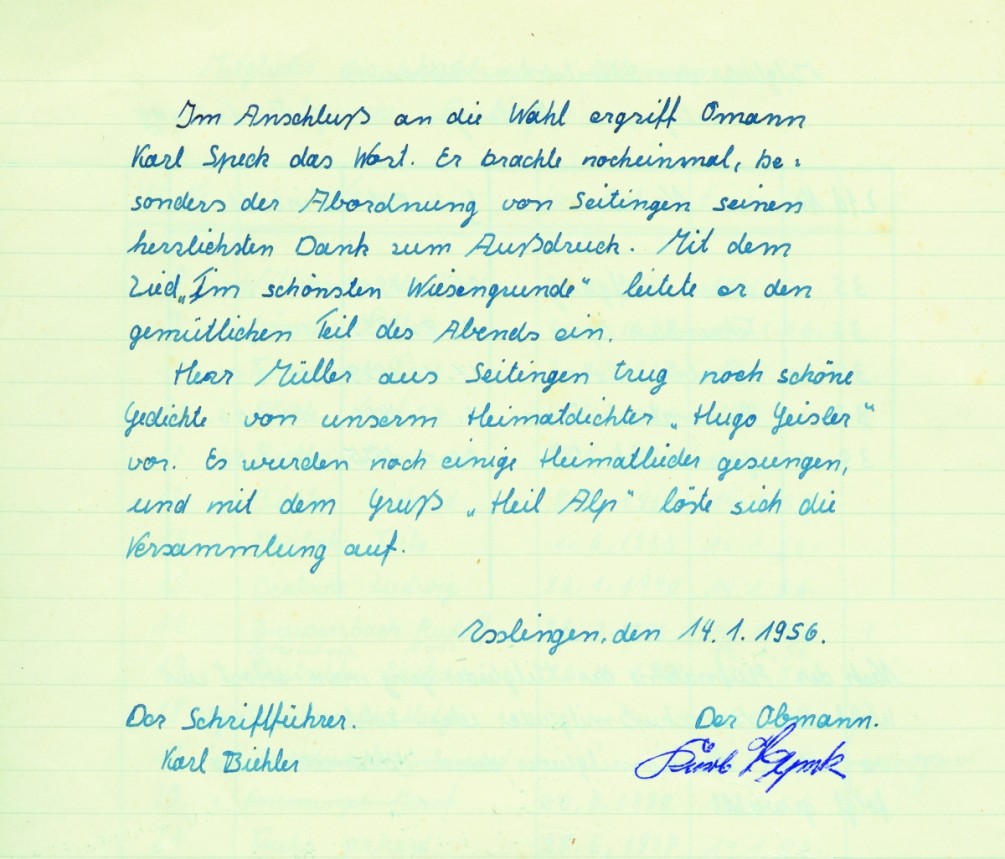 Im Anschluß an die Wahl ergriff Omann
Karl Speck das Wort. Er brachte nocheinmal, be=
sonders der Abordnung von Seitingen seinen
herzlichsten Dank zum Außdruck. Mit dem
Lied „Im schönsten Wiesengrunde" leitete er den
gemütlichen Teil des Abends ein.
Herr Müller aus Seitingen trug noch schöne
Gedichte von unserm Heimatdichter „Hugo Geisler"
vor. Es wurden noch einige Heimatlieder gesungen,
und mit dem Gruß „Heil Alp" löste sich die
Versammlung auf.
Esslingen, den 14.1.1956.
Der Schriftführer. Der Obmann.
Karl Biehler Karl Speck